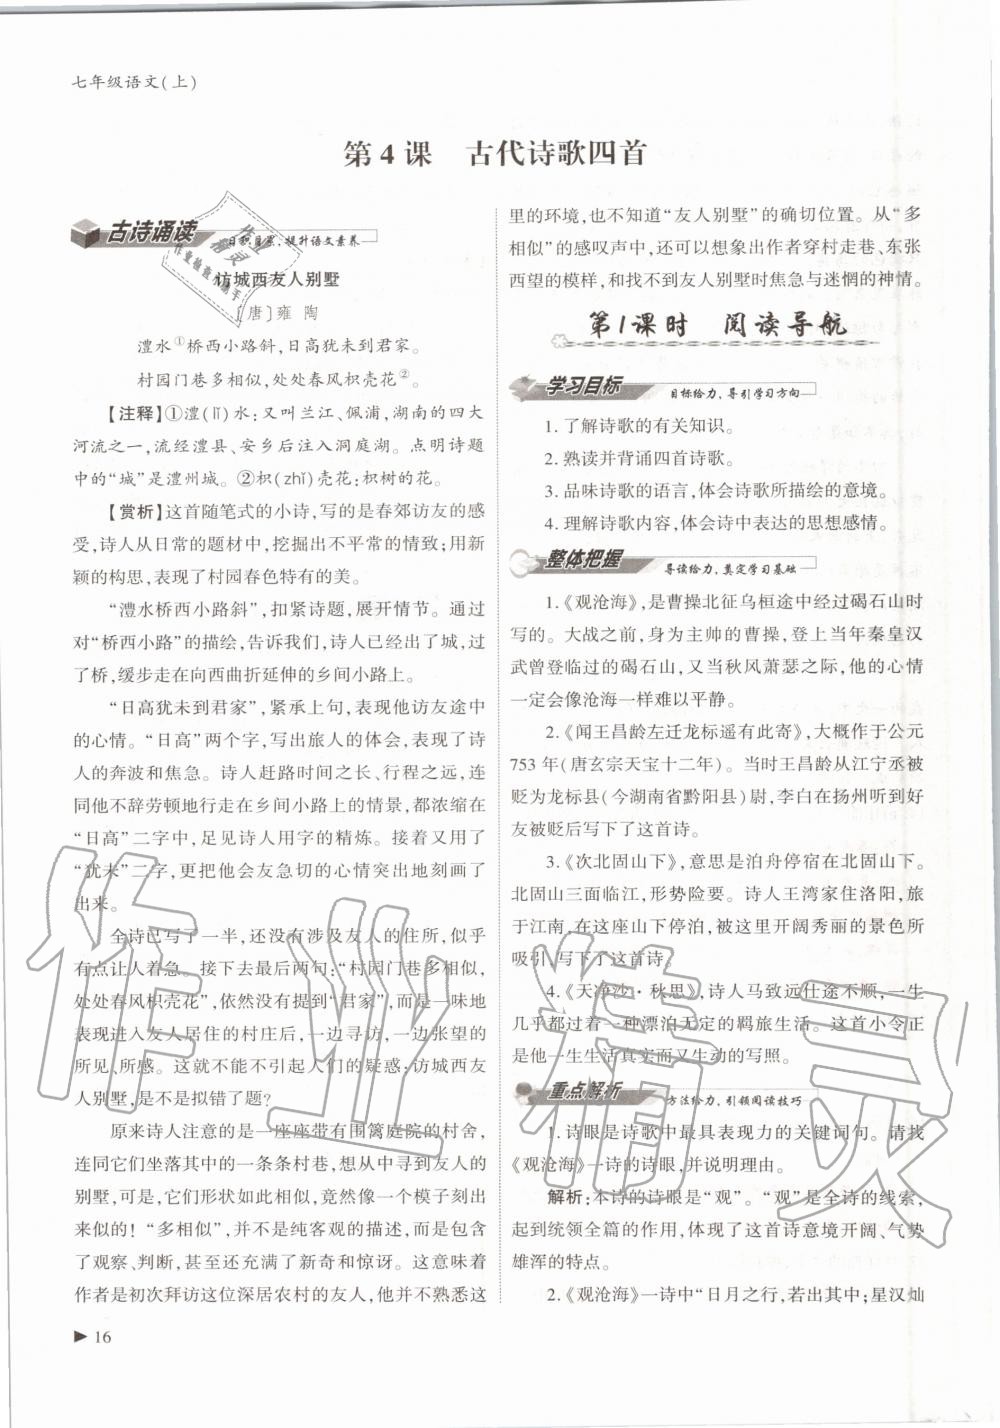 七年级语文(上)
第4课 古代诗歌四首
古诗诵读
日积月累,提升语文素养
访城西友人别墅
〔唐〕雍 陶
澧水①桥西小路斜,日高犹未到君家。
村园门巷多相似,处处春风枳壳花②。
【注释】①澧(lǐ)水:又叫兰江、佩浦,湖南的四大
河流之一,流经澧县、安乡后注入洞庭湖。点明诗题
中的“城”是澧州城。②枳(zhǐ)壳花:枳树的花。
【赏析】这首随笔式的小诗,写的是春郊访友的感
受,诗人从日常的题材中,挖掘出不平常的情致;用新
颖的构思,表现了村园春色特有的美。
“澧水桥西小路斜”,扣紧诗题,展开情节。通过
对“桥西小路”的描绘,告诉我们,诗人已经出了城,过
了桥,缓步走在向西曲折延伸的乡间小路上。
“日高犹未到君家”,紧承上句,表现他访友途中
的心情。“日高”两个字,写出旅人的体会,表现了诗
人的奔波和焦急。诗人赶路时间之长、行程之远,连
同他不辞劳顿地行走在乡间小路上的情景,都浓缩在
“日高”二字中,足见诗人用字的精炼。接着又用了
“犹未”二字,更把他会友急切的心情突出地刻画了
出来。
全诗已写了一半,还没有涉及友人的住所,似乎
有点让人着急。接下去最后两句:“村园门巷多相似,
处处春风枳壳花”,依然没有提到“君家”,而是一味地
表现进入友人居住的村庄后,一边寻访,一边张望的
所见、所感。这里包含着作者对友人的疑惑:访城西友
人别墅,是不是拟错了题?
原来诗人注意的是一座座带有围篱庭院的村舍,
连同它们坐落其中的一条条村巷,想从中寻到友人的
别墅,可是,它们形状如此相似,竟然像一个模子刻出
来似的!“多相似”,并不是纯客观的描述,而是包含
了观察、判断,甚至还充满了新奇和惊讶。这意味着
作者是初次拜访这位深居农村的友人,他并不熟悉这
里的环境,也不知道“友人别墅”的确切位置。从“多
相似”的感叹声中,还可以想象出作者穿村走巷、东张
西望的模样,和找不到友人别墅时焦急与迷惘的神情。
第1课时 阅读导航
学习目标
目标给力,导引学习方向
1.了解诗歌的有关知识。
2.熟读并背诵四首诗歌。
3.品味诗歌的语言,体会诗歌所描绘的意境。
4.理解诗歌内容,体会诗中表达的思想感情。
整体把握
导读给力,奠定学习基础
1.《观沧海》,是曹操北征乌桓途中经过碣石山时
写的。大战之前,身为主帅的曹操,登上当年秦皇汉
武曾登临过的碣石山,又当秋风萧瑟之际,他的心情
一定会像沧海一样难以平静。
2.《闻王昌龄左迁龙标遥有此寄》,大概作于公元
753年(唐玄宗天宝十二年)。当时王昌龄从江宁丞被
贬为龙标县(今湖南省黔阳县)尉,李白在扬州听到好
友被贬后写下了这首诗。
3.《次北固山下》,意思是泊舟停宿在北固山下。
北固山三面临江,形势险要。诗人王湾家住洛阳,旅
于江南,在这座山下停泊,被这里开阔秀丽的景色所
吸引,写下了这首诗。
4.《天净沙·秋思》,诗人马致远仕途不顺,一生
几乎都过着一种漂泊无定的羁旅生活。这首小令正
是他一生生活真实而又生动的写照。
重点解析
方法给力,引领阅读技巧
1.诗眼是诗歌中最具表现力的关键词句。请找
《观沧海》一诗的诗眼,并说明理由。
解析:本诗的诗眼是“观”。“观”是全诗的线索,
起到统领全篇的作用,体现了这首诗意境开阔、气势
雄浑的特点。
2.《观沧海》一诗中“日月之行,若出其中;星汉灿
16
作业精灵